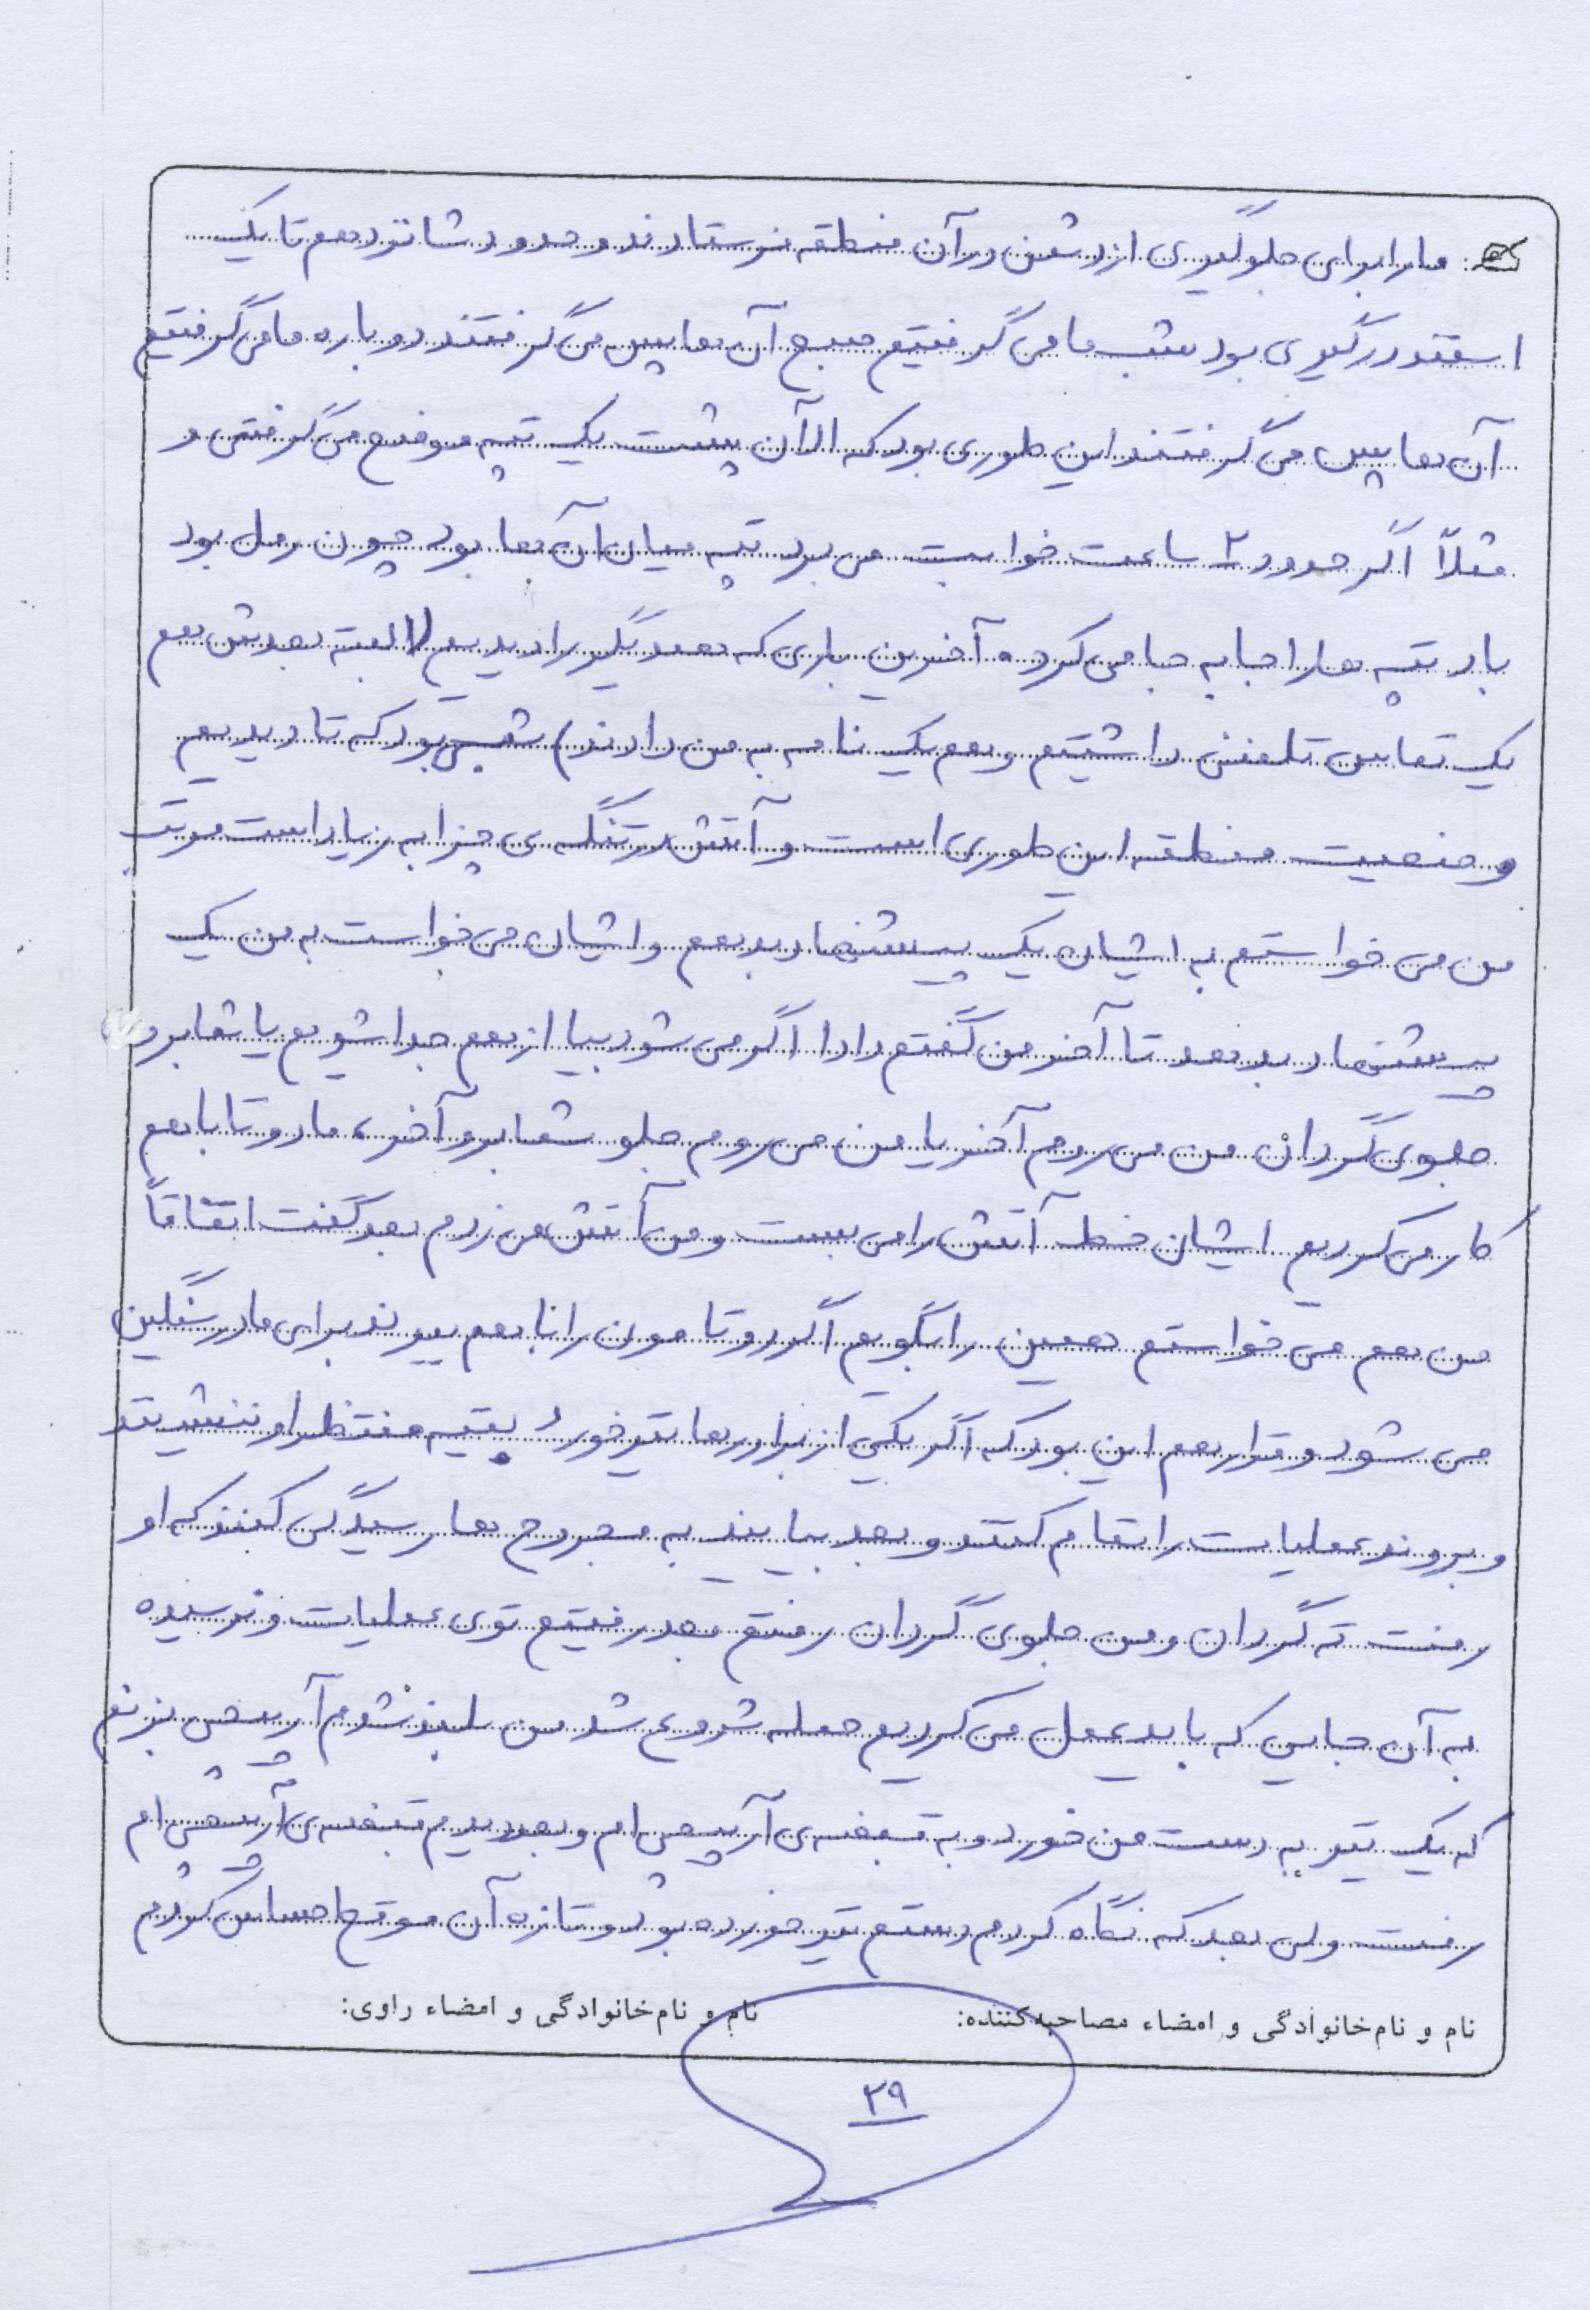 ما را برای جلوگیری از دشمن در آن منطقه فرستادند و حدود شانزدهم تا یک
اسفند درگیری بود شب ما می گرفتیم صبح آن ها پس می گرفتند دوباره ما می گرفتیم
آن ها پس می گرفتند این طوری بود که الآن پشت یک تپه موضع می گرفتی و
مثلاً اگر حدود ۲ ساعت خوابت می برد تپه میان آن ها بود چون رمل بود
باد تپه ها را جا به جا می کرد. آخرین باری که همدیگر را دیدیم (البته بعدش هم
یک تماس تلفنی داشتیم و هم یک نامه به من دادند) شبی بود که تا دیدیم
وضعیت منطقه این طوری است و آتش در تنگه ی چزابه زیاد است موقت
من می خواستم به ایشان یک پیشنهاد بدهم و ایشان می خواست به من یک
پیشنهاد بدهد تا آخر من گفتم دادا اگر می شود بیا از هم جدا شویم یا شما برو
جلوی گردان من می روم آخر یا من می روم جلو شما برو آخر، ما دو تا با هم
کار می کردیم ایشان خط آتش را می بست و من آتش می زدم بعد گفت اتفاقاً
من هم می خواستم همین را بگویم اگر دو تا مون را با هم ببرند برای مادر سنگین
می شود و قرار هم این بود که اگر یکی از برادرها تیر خورد بقیه منتظر او ننشینند
و بروند عملیات را تمام کنند و بعد بیایند به مجروح ها رسیدگی کنند که او
رفت ته گردان و من جلوی گردان رفتم بعد رفتیم توی عملیات و نرسیده
به آن جایی که باید عمل می کردیم حمله شروع شد من بلند شدم آرپیجی بزنم
که یک تیر به دست من خورد و به قبضه ی آرپیجی ام و بعد دیدم قبضه ی آرپیجی ام
رفت ولی بعد که نگاه کردم دستم تیر خورده بود و تازه آن موقع احساس کردم
نام و نام خانوادگی و امضاء مصاحبه کننده: نام و نام خانوادگی و امضاء راوی:
۲۹